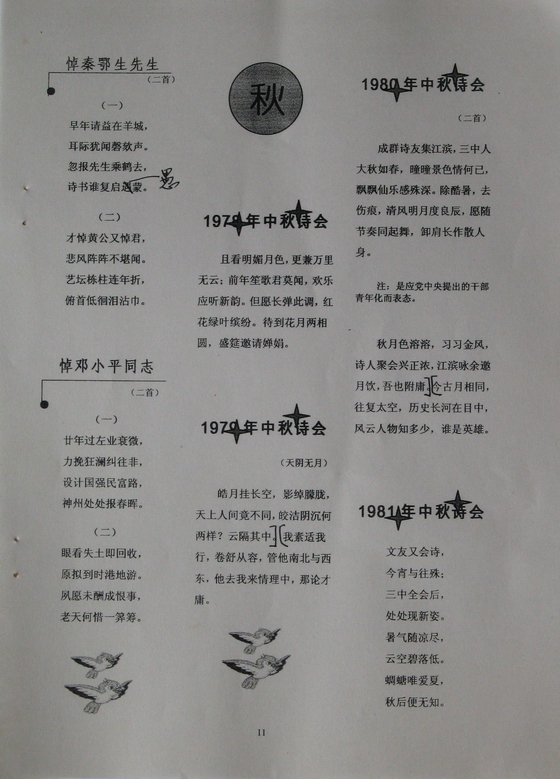 悼秦鄂生先生
（二首）
（一）
早年请益在羊城，
耳际犹闻磬欬声。
忽报先生乘鹤去，
诗书谁复启蒙。
愚
（二）
才悼黄公又悼君，
悲风阵阵不堪闻。
艺坛栋柱连年折，
俯首低徊泪沾巾。
悼邓小平同志
（二首）
（一）
廿年过左业衰微，
力挽狂澜纠往非，
设计国强民富路，
神州处处报春晖。
（二）
眼看失土即回收，
原拟到时港地游。
夙愿未酬成恨事，
老天何惜一筭筹。
秋
1978年中秋诗会
且看明媚月色，更兼万里
无云；前年笙歌君莫闻，欢乐
应听新韵。但愿长弹此调，红
花绿叶缤纷。待到花月两相
圆，盛筵邀请婵娟。
1979年中秋诗会
（天阴无月）
皓月挂长空，影绰朦胧，
天上人间竟不同，皎洁阴沉何
两样？云隔其中。我素适我
行，卷舒从容，管他南北与西
东，他去我来情理中，那论才
庸。
1980年中秋诗会
（二首）
成群诗友集江滨，三中人
大秋如春，曈曈景色情何已，
飘飘仙乐感殊深。除酷暑，去
伤痕，清风明月度良辰，愿随
节奏同起舞，卸肩长作散人
身。
注：是应党中央提出的干部
青年化而表态。
秋月色溶溶，习习金风，
诗人聚会兴正浓，江滨咏余邀
月饮，吾也附庸。今古月相同，
往复太空，历史长河在目中，
风云人物知多少，谁是英雄。
1981年中秋诗会
文友又会诗，
今宵与往殊；
三中全会后，
处处现新姿。
暑气随凉尽，
云空碧落低。
蜩螗唯爱夏，
秋后便无知。
11